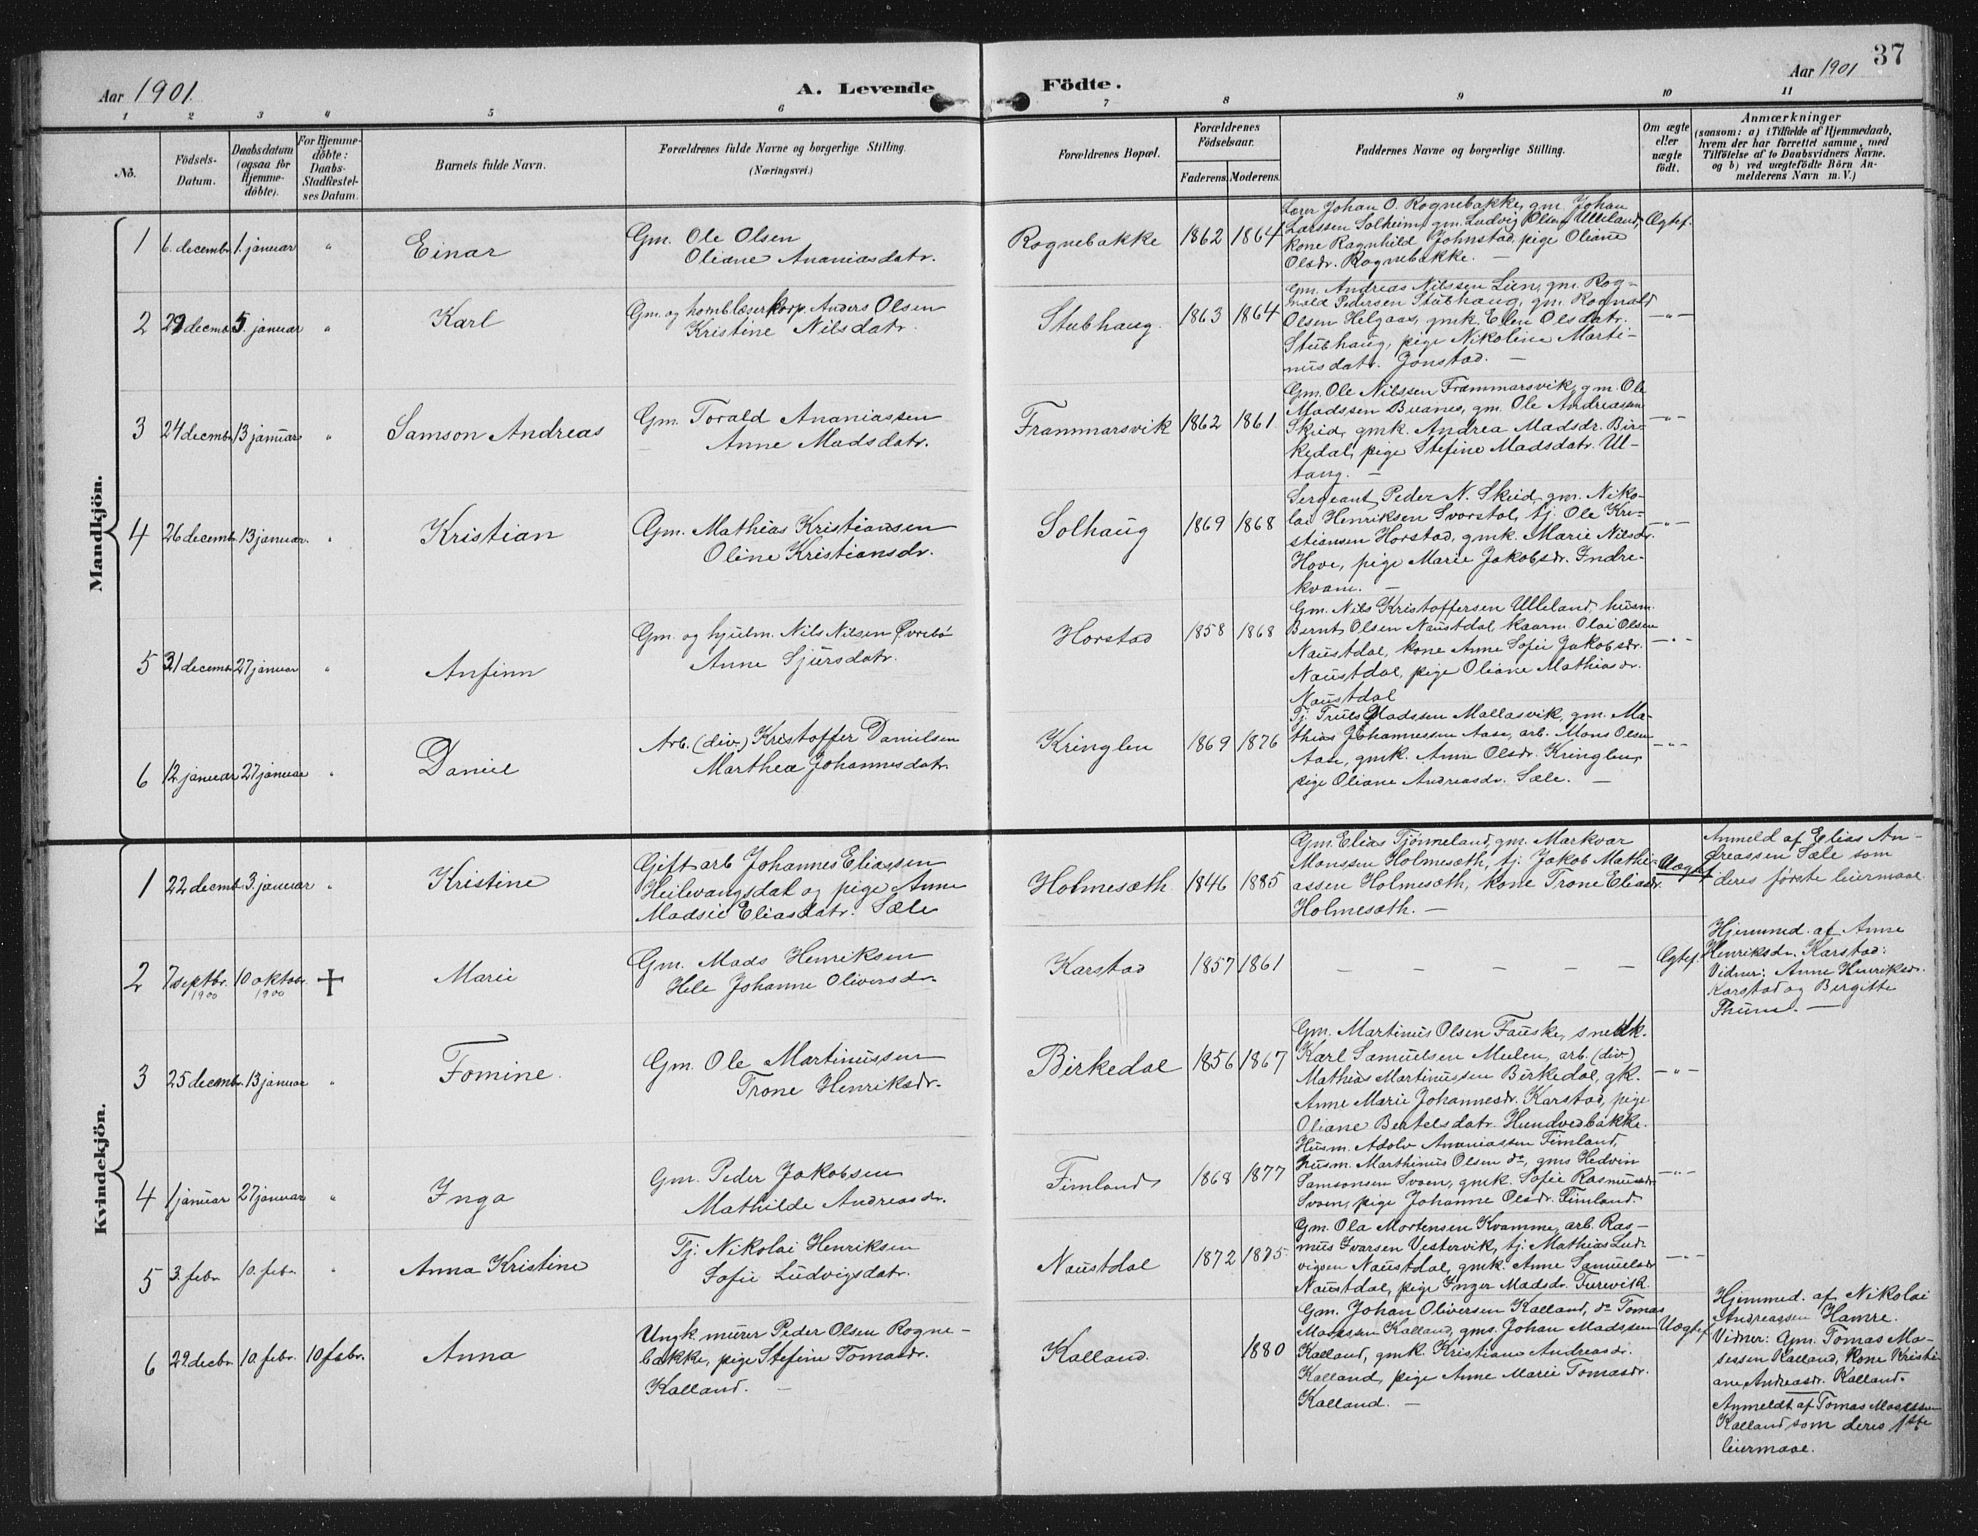 Aar 1901.
A. Levende
Födte.
Aar 1901
37
1 2 3 4 5 6 7 8 9 10 11
No.
Födsels-
Datum.
Daabsdatum
(ogsaa for
Hjemme-
döbte).
For Hjemme-
döbte:
Daabs-
Stadfæstel-
ses Datum.
Barnets fulde Navn.
Forældrenes fulde Navne og borgerlige Stilling.
(Næringsvei.)
Forældrenes Bopæl.
Forældrenes
Födselsaar.
Faderens. Moderens.
Faddernes Navne og borgerlige Stilling.
Om ægte
eller
uægte
födt.
Anmærkninger
(saasom: a) i Tilfælde af Hjemmedaab,
hvem der har forrettet samme, med
Tilföielse af to Daabsvidners Navne,
og b) ved uægtefödte Börn An-
melderens Navn m. V.)
Mandkjön.
1 6. decembr. 1. januar " Einar
Gm. Ole Olsen
Oliane Ananiasdatr.
Rognebakke 1862 1864
Lærer Johan O. Rognebakke, gm. Johan
Larssen Solheim, gm. Ludvig Olsen Ulleland,
kone Ragnhild Johnstad, pige Oliane
Olsdr. Rognebakke. —
Ægtef.
2 29 decmb. 5. januar " Karl
Gm. og hornblæserkorp. Anders Olsen
Kristine Nilsdatr.
Stubhaug. 1863 1864
Gm. Andreas Nilssen Lien, gm. Rog-
nald Pedersen Stubhaug, gm. Rognald
Olsen Helgaas, gmk. Elen Olsdatr.
Stubhaug, pige Nikoline Marti-
nusdatr. Jonstad. —
—"—
3 24 decmbr. 13 januar " Samson Andreas
Gm. Torald Ananiassen
Anne Madsdatr.
Frammarsvik 1862 1861.
Gm. Ole Nilssen Frammarsvik, gm. Ole
Madssen Buanes, gm. Ole Andreassen
Skud, gmk. Andrea Madsdr. Bir-
kedal, pige Stefine Madsdatr. Ul-
tang. —
—"—
4 26 decemb. 13 januar. " Kristian
Gm. Mathias Kristiansen
Oline Kristiansdr.
Solhaug 1869 1868
Sergeant Peder N. Skud, gm. Niko-
lai Henriksen Svorstøl, tj. Ole Kri-
stiansen Horstad, gmk. Marie Nilsdr.
Hove, pige Marie Jakobsdr. Indre-
kvam. —
—"—
5 31 decemb. 27 januar " Anfinn
Gm. og hjulm. Nils Nilsen Øvrebø
Anne Sjursdatr.
Horstad 1858 1868
Gm. Nils Kristoffersen Ulleland, husm.
Bernt Olsen Naustdal kaarm. Olai Olsen
Naustdal, kone Anne Sofie Jakobsdr.
Naustdal, pige Oliane Mathiasdr.
Naustdal
—"—
6 12 januar 27 januar " Daniel
Arb. (div.) Kristoffer Danielsen
Marthea Johannesdatr.
Kringlen 1869 1876
Tj. Truls Madssen Mallasvik, gm. Ma-
thias Johannessen Aase, arb. Mons Olsen
Aase, gmk. Anne Olsdr. Kringlen,
pige Oliane Andreasdr. Sæle. —
—"—
Kvindekjön.
1 22 decmb. 3. januar " Kristine
Gift arb Johannes Eliassen
Heilevangsdal og pige Anne
Madsie Eliasdatr. Sæle
Holmesæth 1846 1885
Gm. Elias Tjønneland, gm. Markvar
Monssen Holmesæth, tj. Jakob Mathi-
assen Holmesæth, kone Trone Eliasdr.
Holmesæth. —
Uægtef.
Anmeld af Elias An-
dreassen Sæle som
deres første leiermaal.
2 7 septbr. 1900 10 oktobr. 1900 + Marie
Gm. Mads Henriksen
Hele Johanne Oliversdr.
Karstad 1857 1861
— — — — — —
Ægtef.
Hjemmed. af Anne
Henriksdr. Karstad:
Vidner: Anne Henriksdr.
Karstad og Birgitte
Thune. —
3 25 decmbr. 13 januar " Tomine.
Gm. Ole Martinussen
Trone Henriksdr.
Birkedal 1856 1867
Gm. Martinus Olsen Fauske, snedk.
Karl Samuelsen Mulen, arb. (div)
Mathias Martinussen Birkedal, gk.
Anne Marie Johannesdr. Karstad, pige
Oliane Bertelsdatr. Hundvedbakke.
—"—
4 1 januar 27 januar " Inga
Gm. Peder Jakobsen
Mathilde Andreasdr.
Fimland 1868 1877
Husm. Adolv Ananiassen Fimland,
husm. Marthinus Olsen do, gms Hedvin
Samsonsen Svoen, gmk. Sofie Rasmusdr.
Svoen, pige Johanne Olsdr. Fimland.
—"—
5 3. febr. 10. febr. " Anna Kristine
Tj. Nikolai Henriksen
Sofie Ludvigsdatr.
Naustdal 1872 1875.
Gm. Ola Mortensen Kvamme, arb. Ras-
mus Ivarsen Vestervik, tj. Mathias Lud-
vigsen Naustdal, gmk. Anne Samuelsdr
Naustdal, pige Inger Madsdr. Furevik.
—"—
6 29. decbr. 10. febr. 10 febr. Anna
Ungk. murer Peder Olsen Rogne-
bakke, pige Stefine Tomasdr.
Kalland. —
Kalland. 1880
Gm. Johan Oliversen Kalland, do Tomas
Mosessen Kalland, gms. Johan Madssen
Kalland, gmk Kristiane Andreasdr.
Kalland, pige Anne Marie Tomasdr.
Kalland. —
Uægtef.
Hjemmed. af Nikolai
Andreassen Hamre.
Vidner: Gm. Tomas Mo-
sessen Kalland, kone Kristi-
ane Andreasdr. Kalland.
Anmeldt af Tomas Mosessen
Kalland som deres 1ste
leiermaal.